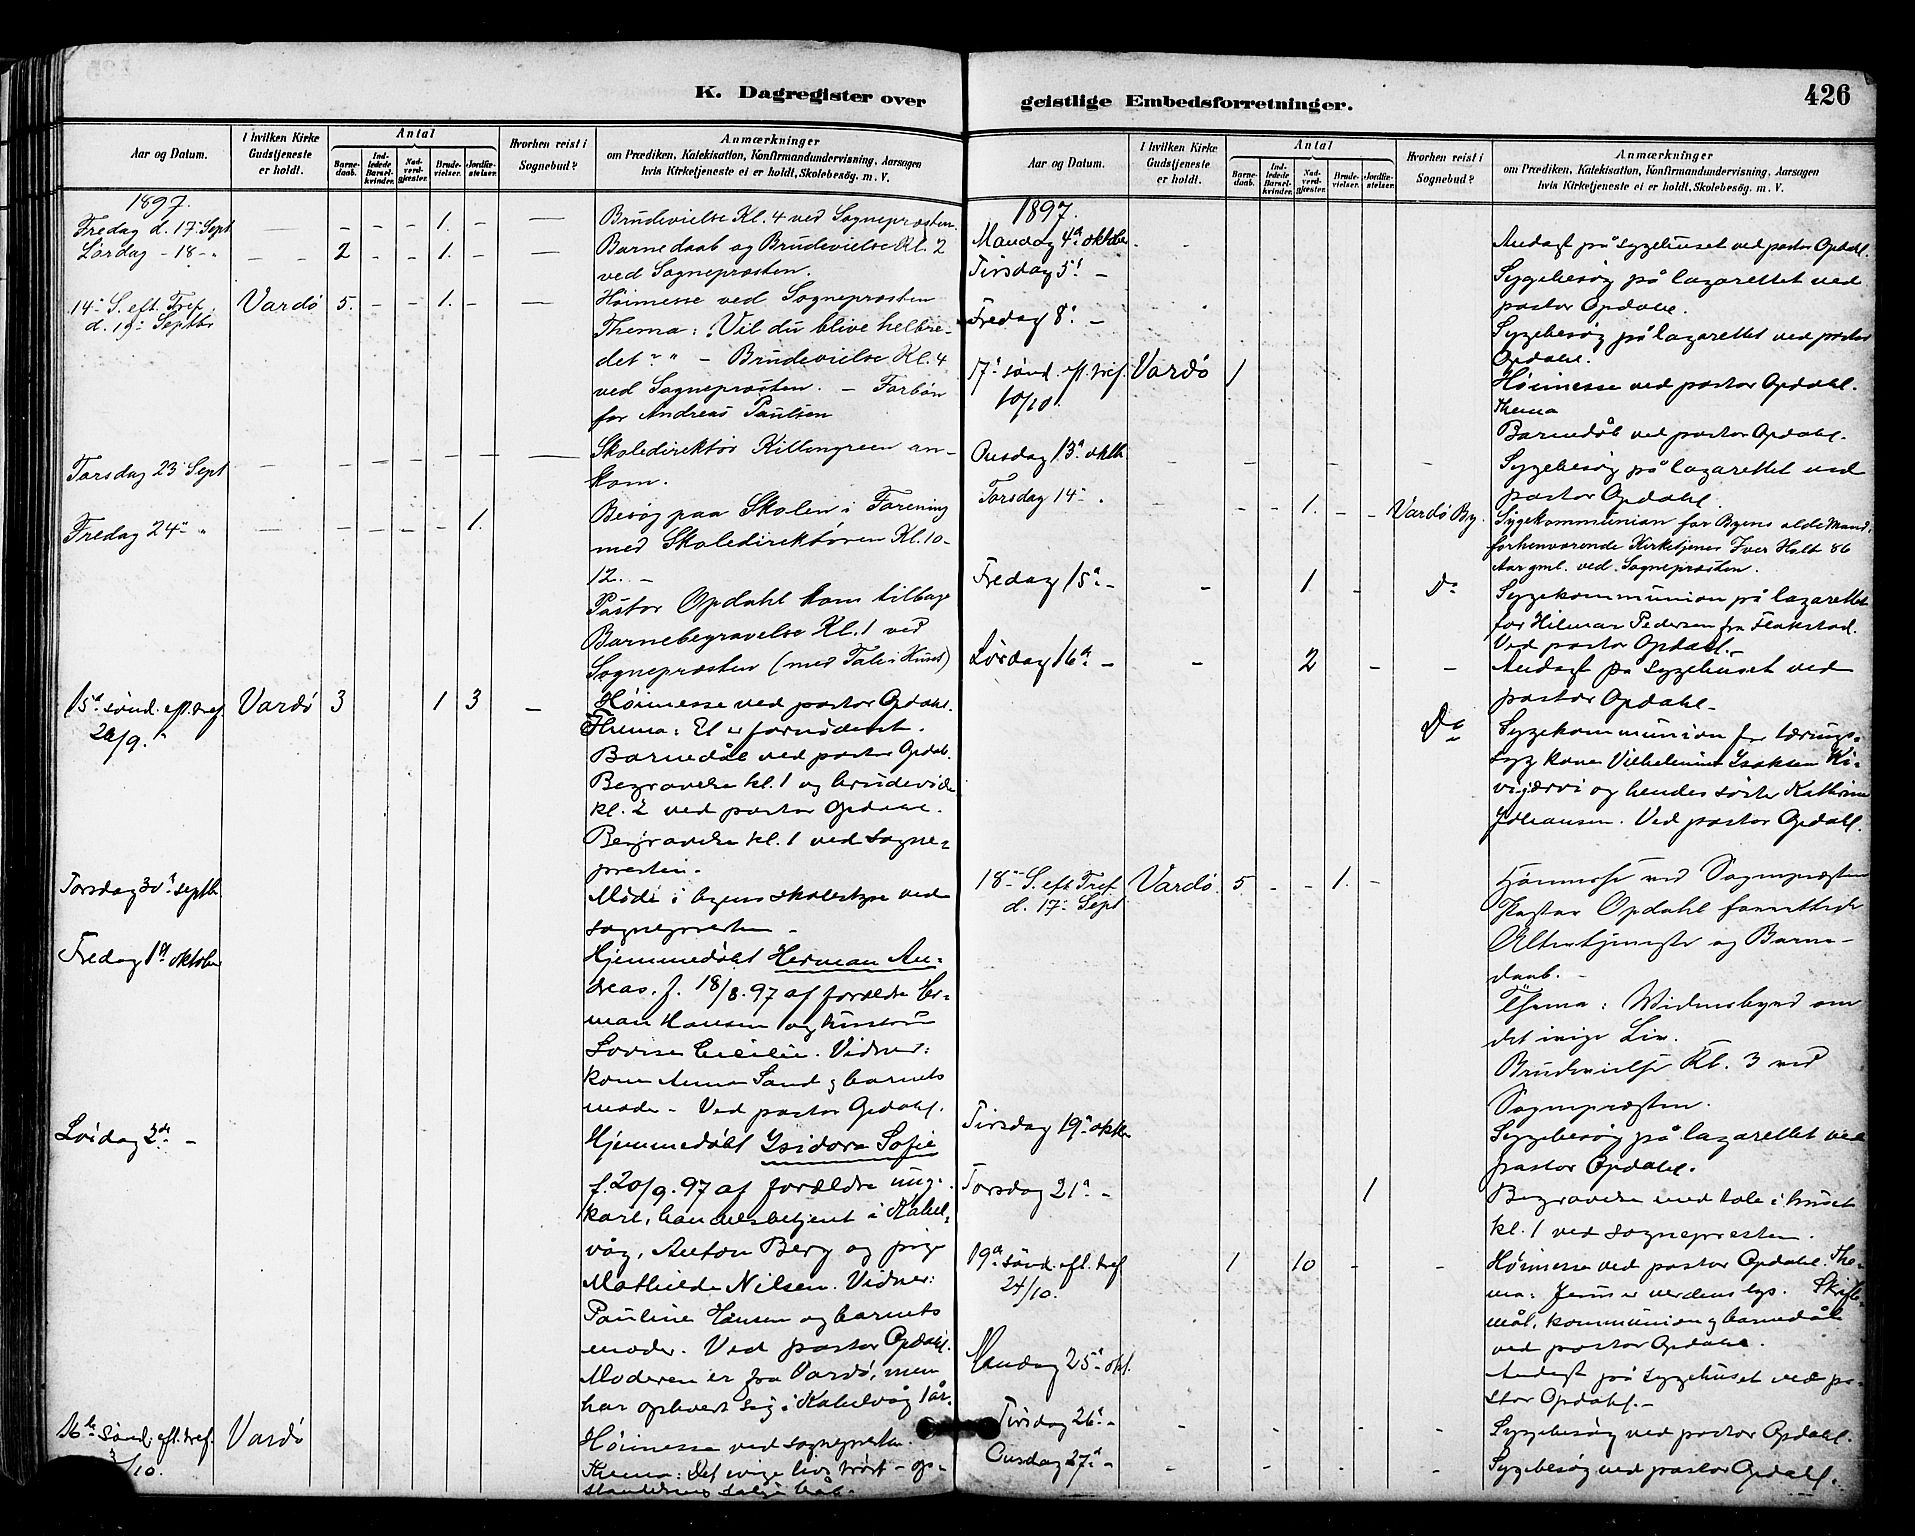 K. Dagregister over
Aar og Datum.
I hvilken Kirke
Gudstjeneste
er holdt.
Antal
Barne-
daab.
Ind-
ledede
Barsel-
kvinder.
Nad-
verd-
gjester.
Brude-
vielser.
Jordfæ-
stelser.
Hvorhen reist i
Sognebud?
Anmærkninger
om Prædiken, Katekisation, Konfirmandundervisning, Aarsagen
hvis Kirketjeneste ei er holdt, Skolebesög. m. V.
1897.
Fredag d. 17 Sept — - - - 1. - — Brudevielse Kl. 4 ved Sognepræsten.
Lørdag - 18 - " - - 2 - - 1. - — Barnedaab og Brudevielse Kl. 2
ved Sognepræsten.
14de S. eft. Tref. Vardø 5. - - 1. - — Høimesse ved Sognepræsten
d. 19de Septbr
Thema: "Vil du blive helbre-
det" - Brudevielse Kl. 4
ved Sognepræsten. - Forbøn
for Andreas Paulsen
Torsdag 23 Sept Skoledirektør Killengreen an-
kom.
Fredag 24de " — - - - - 1. Besøg paa Skolen i Forening
med Skoledirektøren Kl. 10-
12. -
Pastor Opdahl kom tilbage
Barnebegravelse Kl. 1 ved
Sognepræsten (med Tale i Huset)
15de sønd. eft. tref Vardø 3 1 3 — Høimesse ved pastor Opdahl.
26/9. Thema: Et er fornødent.
Barnedåb ved pastor Opdahl.
Begravelse kl. 1 og brudevielse
kl. 2 ved pastor Opdahl.
Begravelse kl. 1 ved sogne-
presten.
Torsdag 30te septb. Møde i byens skolestyre ved
sognepresten -
Fredag 1ste oktober Hjemmedøbt Herman An-
dreas. f. 18/8. 97 af forældre Her-
man Hansen og hustru
Lovise Cecilie. Vidner:
kone Anna Sand og barnets
moder - Ved pastor Opdahl.
Lørdag 2den - Hjemmedøbt Isidora Sofie
f. 20/9. 97 af forældre ung-
karl, handelsbetjent i Kabel-
våg, Anton Berg og pige
Mathilde Nilsen. Vidner:
Pauline Hansen og barnets
moder. Ved pastor Opdahl.
Moderen er fra Vardø, men
har ophvert sig i Kabelvåg 1 år.
16de sønd. eft. tref. Vardø Høimesse ved sognepresten.
3/10. Thema: Det evige livs trøst - op-
standelsens salige håb.
geistlige Embedsforretninger.
426
Aar og Datum.
I hvilken Kirke
Gudstjeneste
er holdt.
Antal
Barne-
daab.
Ind-
ledede
Barsel-
kvinder.
Nad-
verd-
gjester.
Brude-
vielser.
Jordfæ-
stelser.
Hvorhen reist i
Sognebud?
Anmærkninger
om Prædiken, Katekisation, Konfirmandundervisning, Aarsagen
hvis Kirketjeneste ei er holdt, Skolebesög. m. V.
1897.
Mandag 4de oktober - Andagt på sygehuset ved pastor Opdahl.
Tirsdag 5te - Sygebesøg på lazarettet ved
pastor Opdahl.
Fredag 8de - Sygebesøg på lazarettet ved pastor
Opdahl.
17de sønd. eft. tref. Vardø 1 Høimesse ved pastor Opdahl.
10/10. Thema
Barnedåb ved pastor Opdahl.
Onsdag 13de oktb. Sygebesøg på lazarettet ved
pastor Opdahl.
Torsdag 14de - - - 1. - - Vardø By. Sygekommunion for Byens ældste Mand,
forhenværende Kirketjener Iver Holt 86
Aar gml. ved Sognepræsten.
Fredag 15de - - 1 - Do Sygekommunion på lazarettet
for Hilmar Pedersen fra Flakstad.
Ved pastor Opdahl.
Lørdag 16de - - 2 - - Andagt på sygehuset ved
pastor Opdahl -
Do Sygekommunion for tærings-
syg kone Vilhelmine Isaksen Ki-
vijærvi og hendes søster Kathrine
Johansen. Ved pastor Opdahl.
18de S. eft Tref Vardø. 5 - - 1. - Høimesse ved Sognepræsten
d. 17de Sept Pastor Opdahl forrettede
Altertjeneste og Barne-
daab. -
Thema: Vidnesbyrd om
det evige Liv.
Brudevielse Kl. 3 ved
Sognepræsten.
Tirsdag 19de oktb. Sygebesøg på lazarettet ved
pastor Opdahl.
Torsdag 21de - 1 Begravelse med tale i huset
kl. 1 ved sognepresten.
19de sønd. eft. tref 1 10 - - Høimesse ved pastor Opdahl. The-
24/10. ma: Jesus er verdens lys. Skrifte-
mål, kommunion og barnedåb
ved pastor Opdahl.
Mandag 25de okt. Andagt på sygehuset ved pa-
stor Opdahl. -
Tirsdag 26de - Sygebesøg ved pastor Opdahl.
Onsdag 27de - Sygebesøg ved pastor Opdahl.